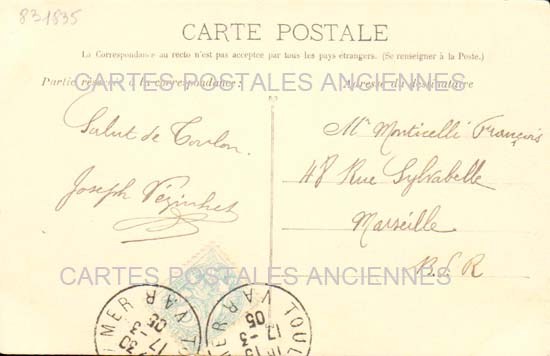 831835
CARTE POSTALE
La Correspondance au recto n'est pas acceptée par tous les pays étrangers. (Se renseigner à la Poste.)
Partie réservée à la correspondance: Adresse du destinataire
CARTES POSTALES ANCIENNES
Salut de Toulon.
Joseph Vézinhet
Mr Monticelli François
48 Rue Sylvabelle
Marseille
B.d.R
CARTES POSTALES ANCIENNES
TOUL
VAR
17-3
05
MER
VAR
30
17-3
05